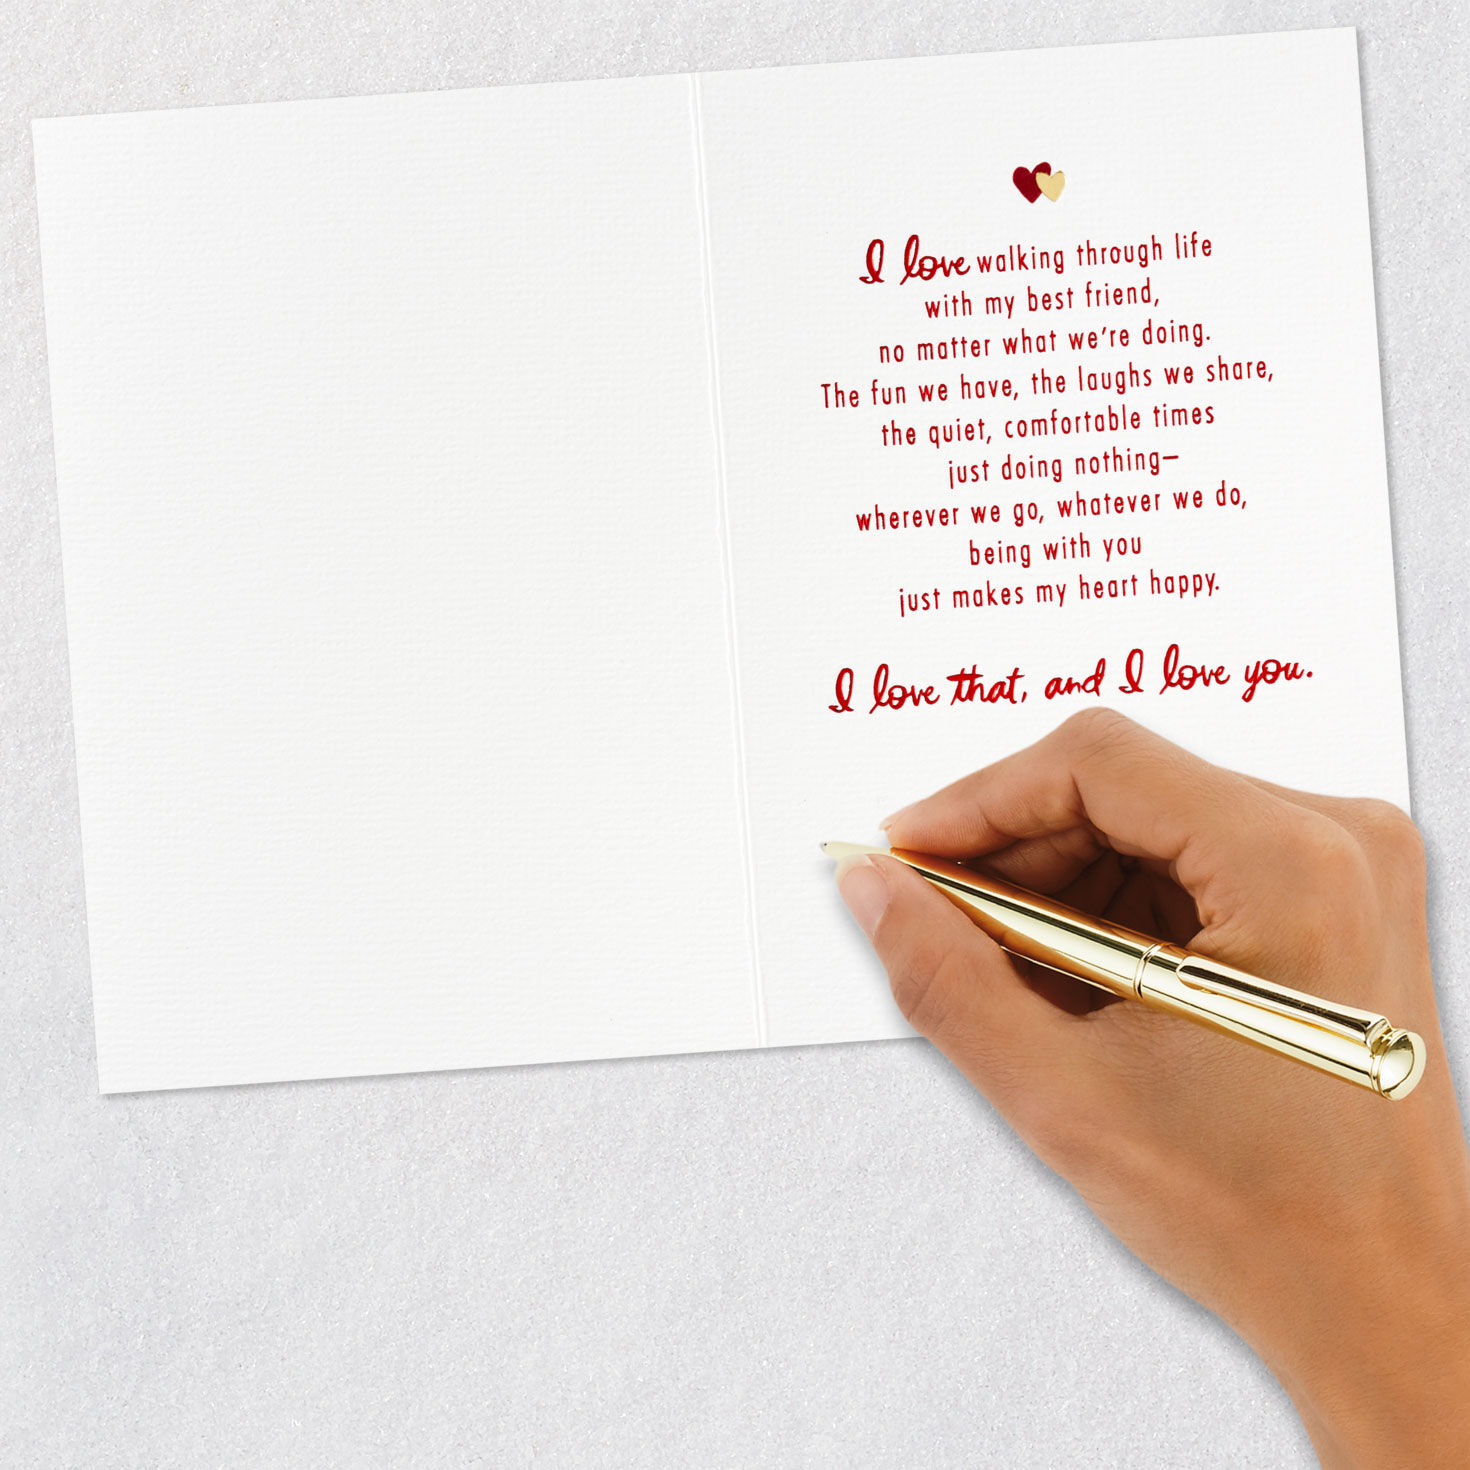 I love walking through life
with my best friend,
no matter what we're doing.
The fun we have, the laughs we share,
the quiet, comfortable times
just doing nothing—
wherever we go, whatever we do,
being with you
just makes my heart happy.
I love that, and I love you.